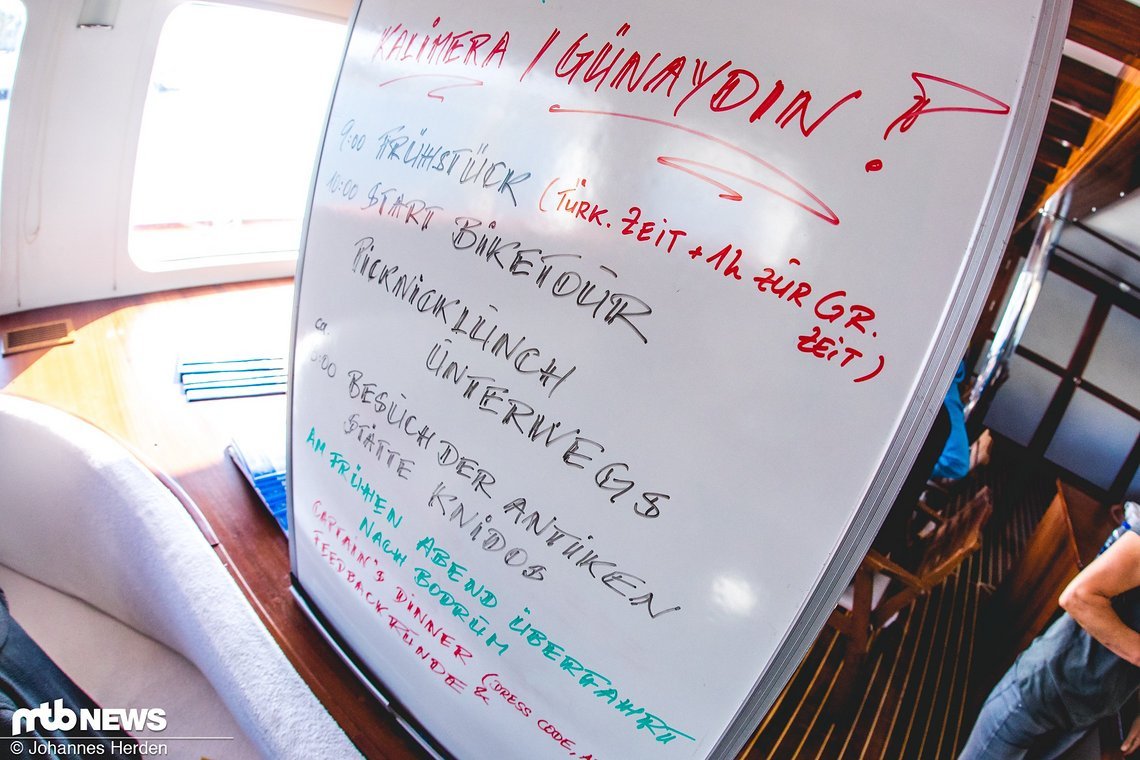 KALIMERA / GÜNAYDIN!
9:00 FRÜHSTÜCK (TÜRK. ZEIT + 1h ZUR GR.
ZEIT)
10:00 START BIKETOUR
PICKNICKLUNCH
UNTERWEGS
ca
BESUCH DER ANTIKEN
STÄTTE KNIDOS
AM FRÜHEN ABEND ÜBERFAHRT
NACH BODRUM
CAPTAIN'S DINNER (DRESS CODE,
FEEDBACKRUNDE &
mtb NEWS
© Johannes Herden